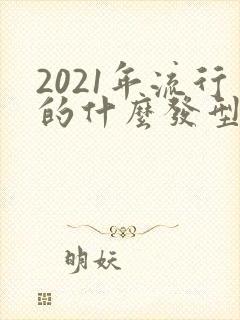 2021年流行
的什麼發型
明妖